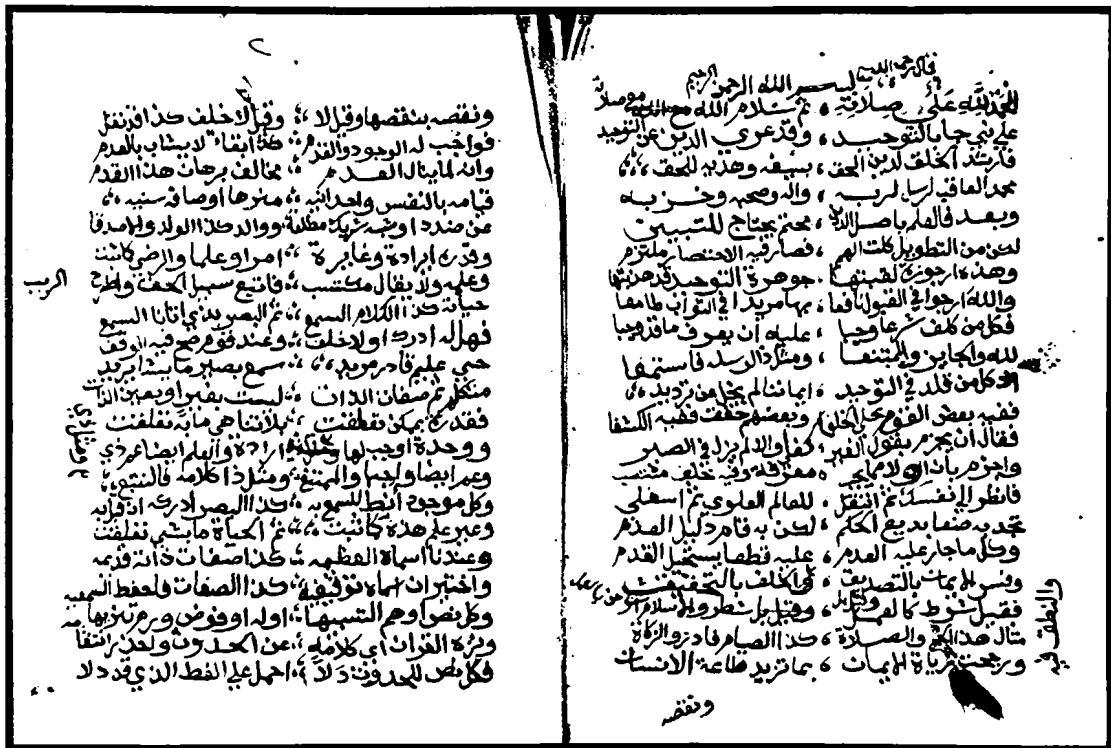 قال رحمه الله
بسم الله الرحمن الرحيم
الحمد لله علي صلاته ، ثم سلام الله مع صلاته
علي نبي جا بالتوحيد ، وقد عري الدين عن التوحيد
فارشد الخلق لدين الحق ، بسيفه وهديه للحق
محمد العاقب لرسل ربه ، واله وصحبه وحزبه
وبعد فالعلم باصل الدين ، محتم يحتاج للتبيين
لكن من التطويل كلت الهمم ، فصار فيه الاختصار ملتزم
وهذه ارجوزة لقبتها ، جوهرة التوحيد قد هذبتها
والله ارجوا في القبول نافعا ، بها مريدا في الثواب طامعا
فكل من كلف شرعا وجبا ، عليه ان يعرف ما قد وجبا
لله والجايز والممتنعا ، ومثل ذا لرسله فاستمعا
اذ كل من قلد في التوحيد ، ايمانه لم يخل من ترديد
ففيه بعض القوم يحكي الخلفا ، وبعضهم حقق فيه الكشفا
فقال ان يجزم بقول الغير ، كفي والا لم يزل في الضير
واجزم بان اولا مما يجب ، معرفة وفيه خلف منتصب
فانظر الي نفسك ثم انتقل ، للعالم العلوي ثم السفلي
تجد به صنعا بديع الحكم ، لكن به قام دليل العدم
وكل ما جاز عليه العدم ، عليه قطعا يستحيل القدم
وفسر الايمان بالتصديق ، والخلف بالتحقيق
والنطق فيه
فقيل شرط كالعمل وقيل بل ، شطر والاسلام اشرحن بالعمل
مثال هذا الحج والصلاة ، كذا الصيام فادر والزكاة
ورجحت زيادة الايمان ، بما تزيد طاعة الانسان
ونقصه
٢
ونقصه بنقصها وقيل لا ، وقيل لا خلف كذا قد نقل
فواجب له الوجود والقدم ، كذا ابقاء لا يشاب بالعدم
وانه لما ينال العدم ، مخالف برهان هذا القدم
قيامه بالنفس وحدانيه ، منزها اوصافه سنيه
عن ضد او شبه شريك مطلقا ، ووالد كذا الولد والاصدقا
وقدرة ارادة وغايرة ، امرا وعلما والرضي كما ثبت
وعلمه ولا يقال مكتسب ، فاتبع سبيل الحق واطرح
الريب
حياته كذا الكلام السمع ، ثم البصر بذي اتانا السمع
فهل له ادراك اولا خلف ، وعند قوم صح فيه الوقف
حي عليم قادر مريد ، سمع بصير ما يشا يريد
متكلم ثم صفات الذات ، ليست بغير او بعين الذات
فقدرة بممكن تعلقت ، بلا تناهي ما به تعلقت
ووحدة اوجب لها ومثل ذي ، ارادة والعلم ايضا عم ذي
وعم ايضا واجبا والممتنع ، ومثل ذا كلامه فالنتبع
وكل موجود انط للسمع به ، كذا البصر ادراكه ان قيل به
وغير علم هذه كما ثبت ، ثم الحياة ما بشي تعلقت
وعندنا اسماه العظيمه ، كذا صفات ذاته قديمه
واختير ان اسماه توقيفيه ، كذا الصفات فاحفظ السمعيه
وكل نص اوهم التشبيها ، اوله او فوض ورم تنزيها
ونزه القران اي كلامه ، عن الحدوث واحذر انتقامه
فكل نص للحدوث دلا ، احمل علي اللفظ الذي قد دلا